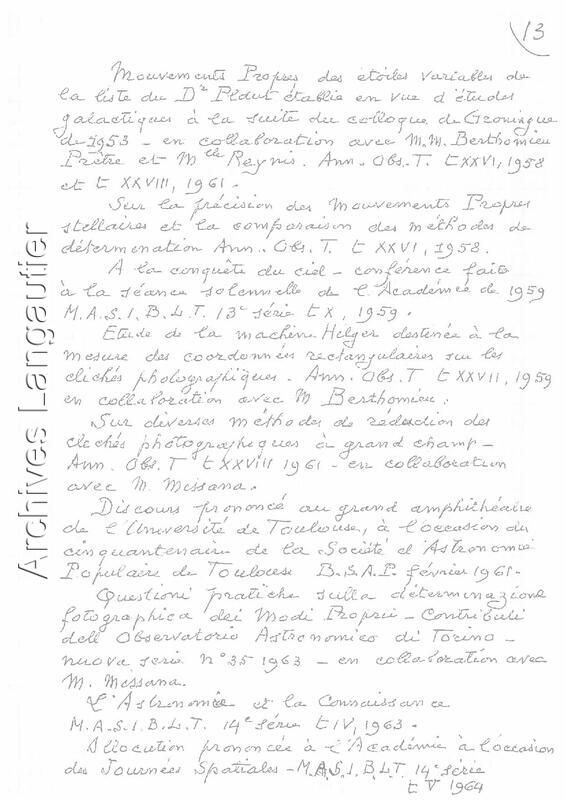 13
Mouvements Propres des étoiles variables de
la liste du Dr Plaut établie en vue d'études
galactiques à la suite du colloque de Groningue
de 1953 - en collaboration avec M.M. Berthomieu
Prêtre et Mlle Reynis. Ann. Obs. T. t XXVI, 1958
et t XXVIII, 1961.
Sur la précision des Mouvements Propres
stellaires et la comparaison des méthodes de
détermination Ann. Obs. T. t XXVI, 1958.
A la conquête du ciel - conférence faite
à la séance solennelle de l'Académie de 1959
M.A.S.I.B.L.T. 13e série t X, 1959.
Etude de la machine Helger destinée à la
mesure des coordonnées rectangulaires sur les
clichés photographiques. Ann. Obs. T t XXVII, 1959
en collaboration avec M Berthomieu.
Sur diverses méthodes de réduction des
clichés photographiques à grand champ -
Ann. Obs. T t XXVIII 1961 - en collaboration
avec M. Missana.
Discours prononcé au grand amphithéaire
de l'Université de Toulouse, à l'occasion du
cinquantenaire de la Société d'Astronomie
Populaire de Toulouse B.S.A.P. février 1961.
Questioni pratiche sulla déterminazione
fotographica dei Modi Proprii - Contributi
dell Observatorio Astronomico di Torino -
nuova serie n° 35 1963 - en collaboration avec
M. Missana.
L'Astronomie et la Connaissance
M.A.S.I.B.L.T. 14e série t IV, 1963.
Allocution prononcée à l'Académie à l'occasion
des Journées Spatiales - M.A.S.I.B.L.T. 14e série
t V 1964
Archives Langautier